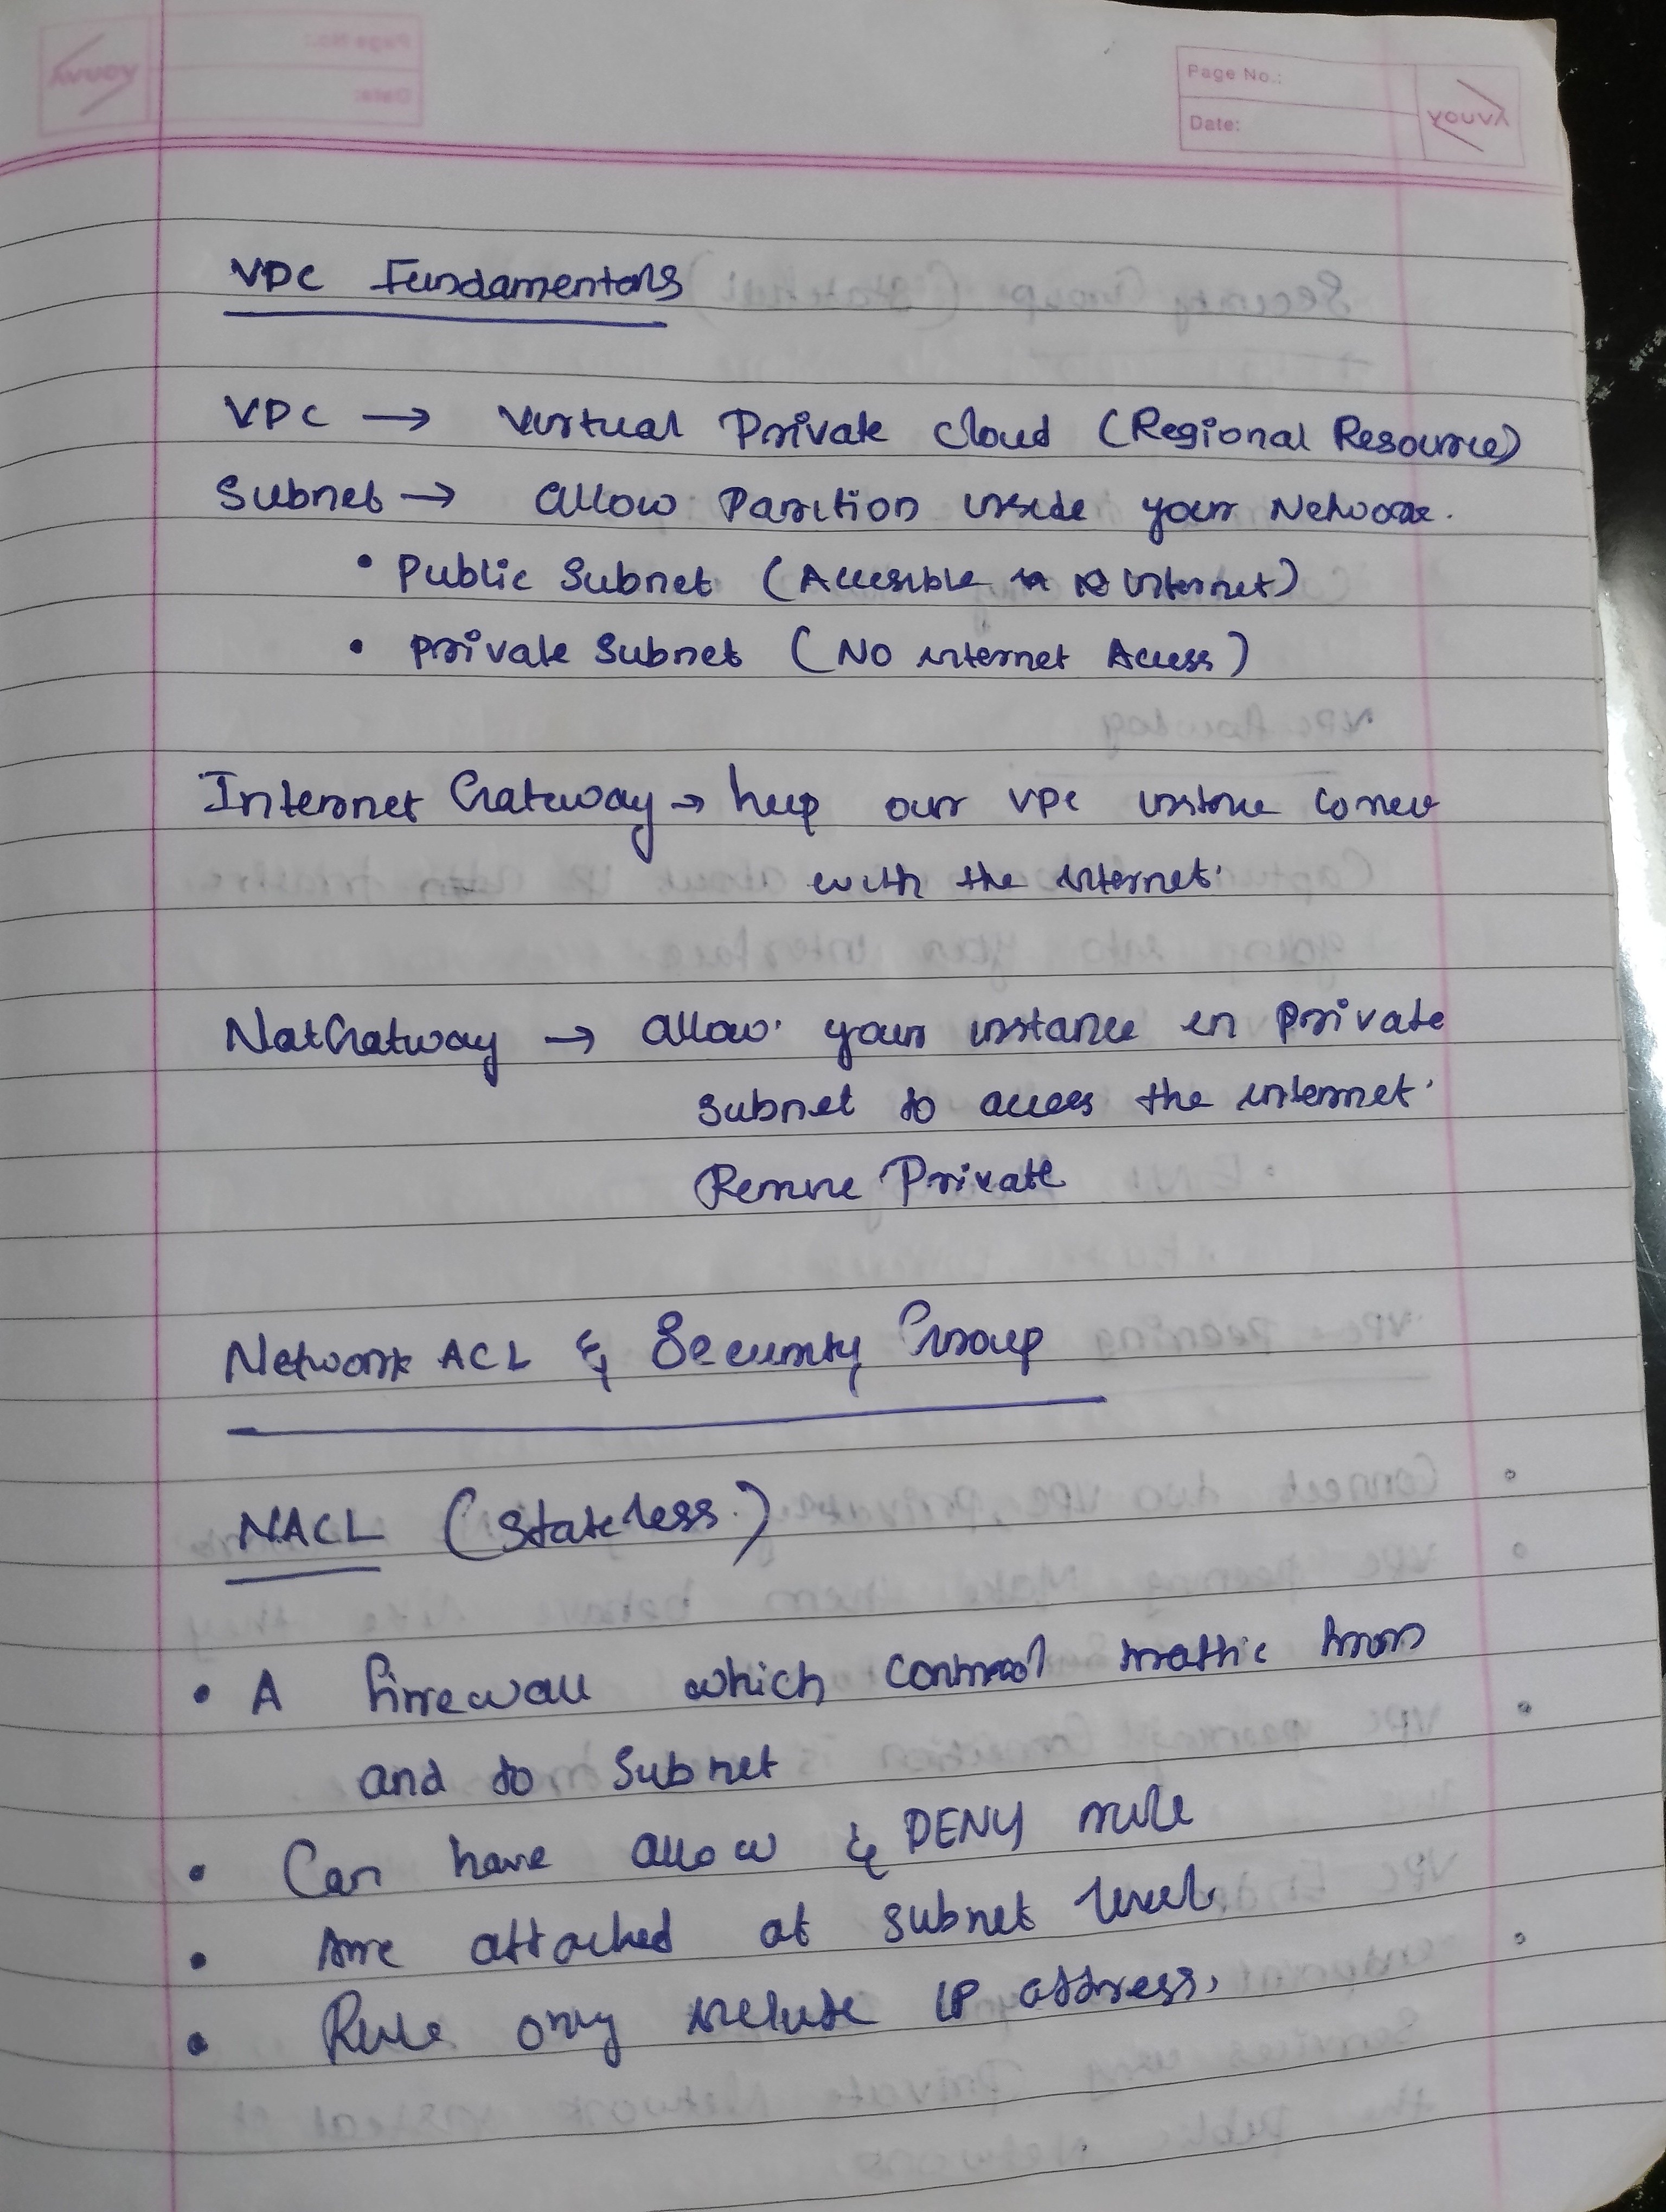 Page No.:
Date:
YOUVA
VPC Fundamentals
VPC → Virtual Private Cloud (Regional Resource)
Subnet → allow Parition inside your Network.
• Public Subnet (Accesible Internet)
• private Subnet (No internet Access)
Internet Gateway → help our VPC instance connect
with the internet.
NatGatway → allow your instance in private
subnet to access the internet.
Private
Network ACL & Security Group
NACL (Stateless)
• A firewall which control traffic from
and to Subnet
• Can have allow & DENY rule
• Are attached at subnet level.
• Rule only include IP address.